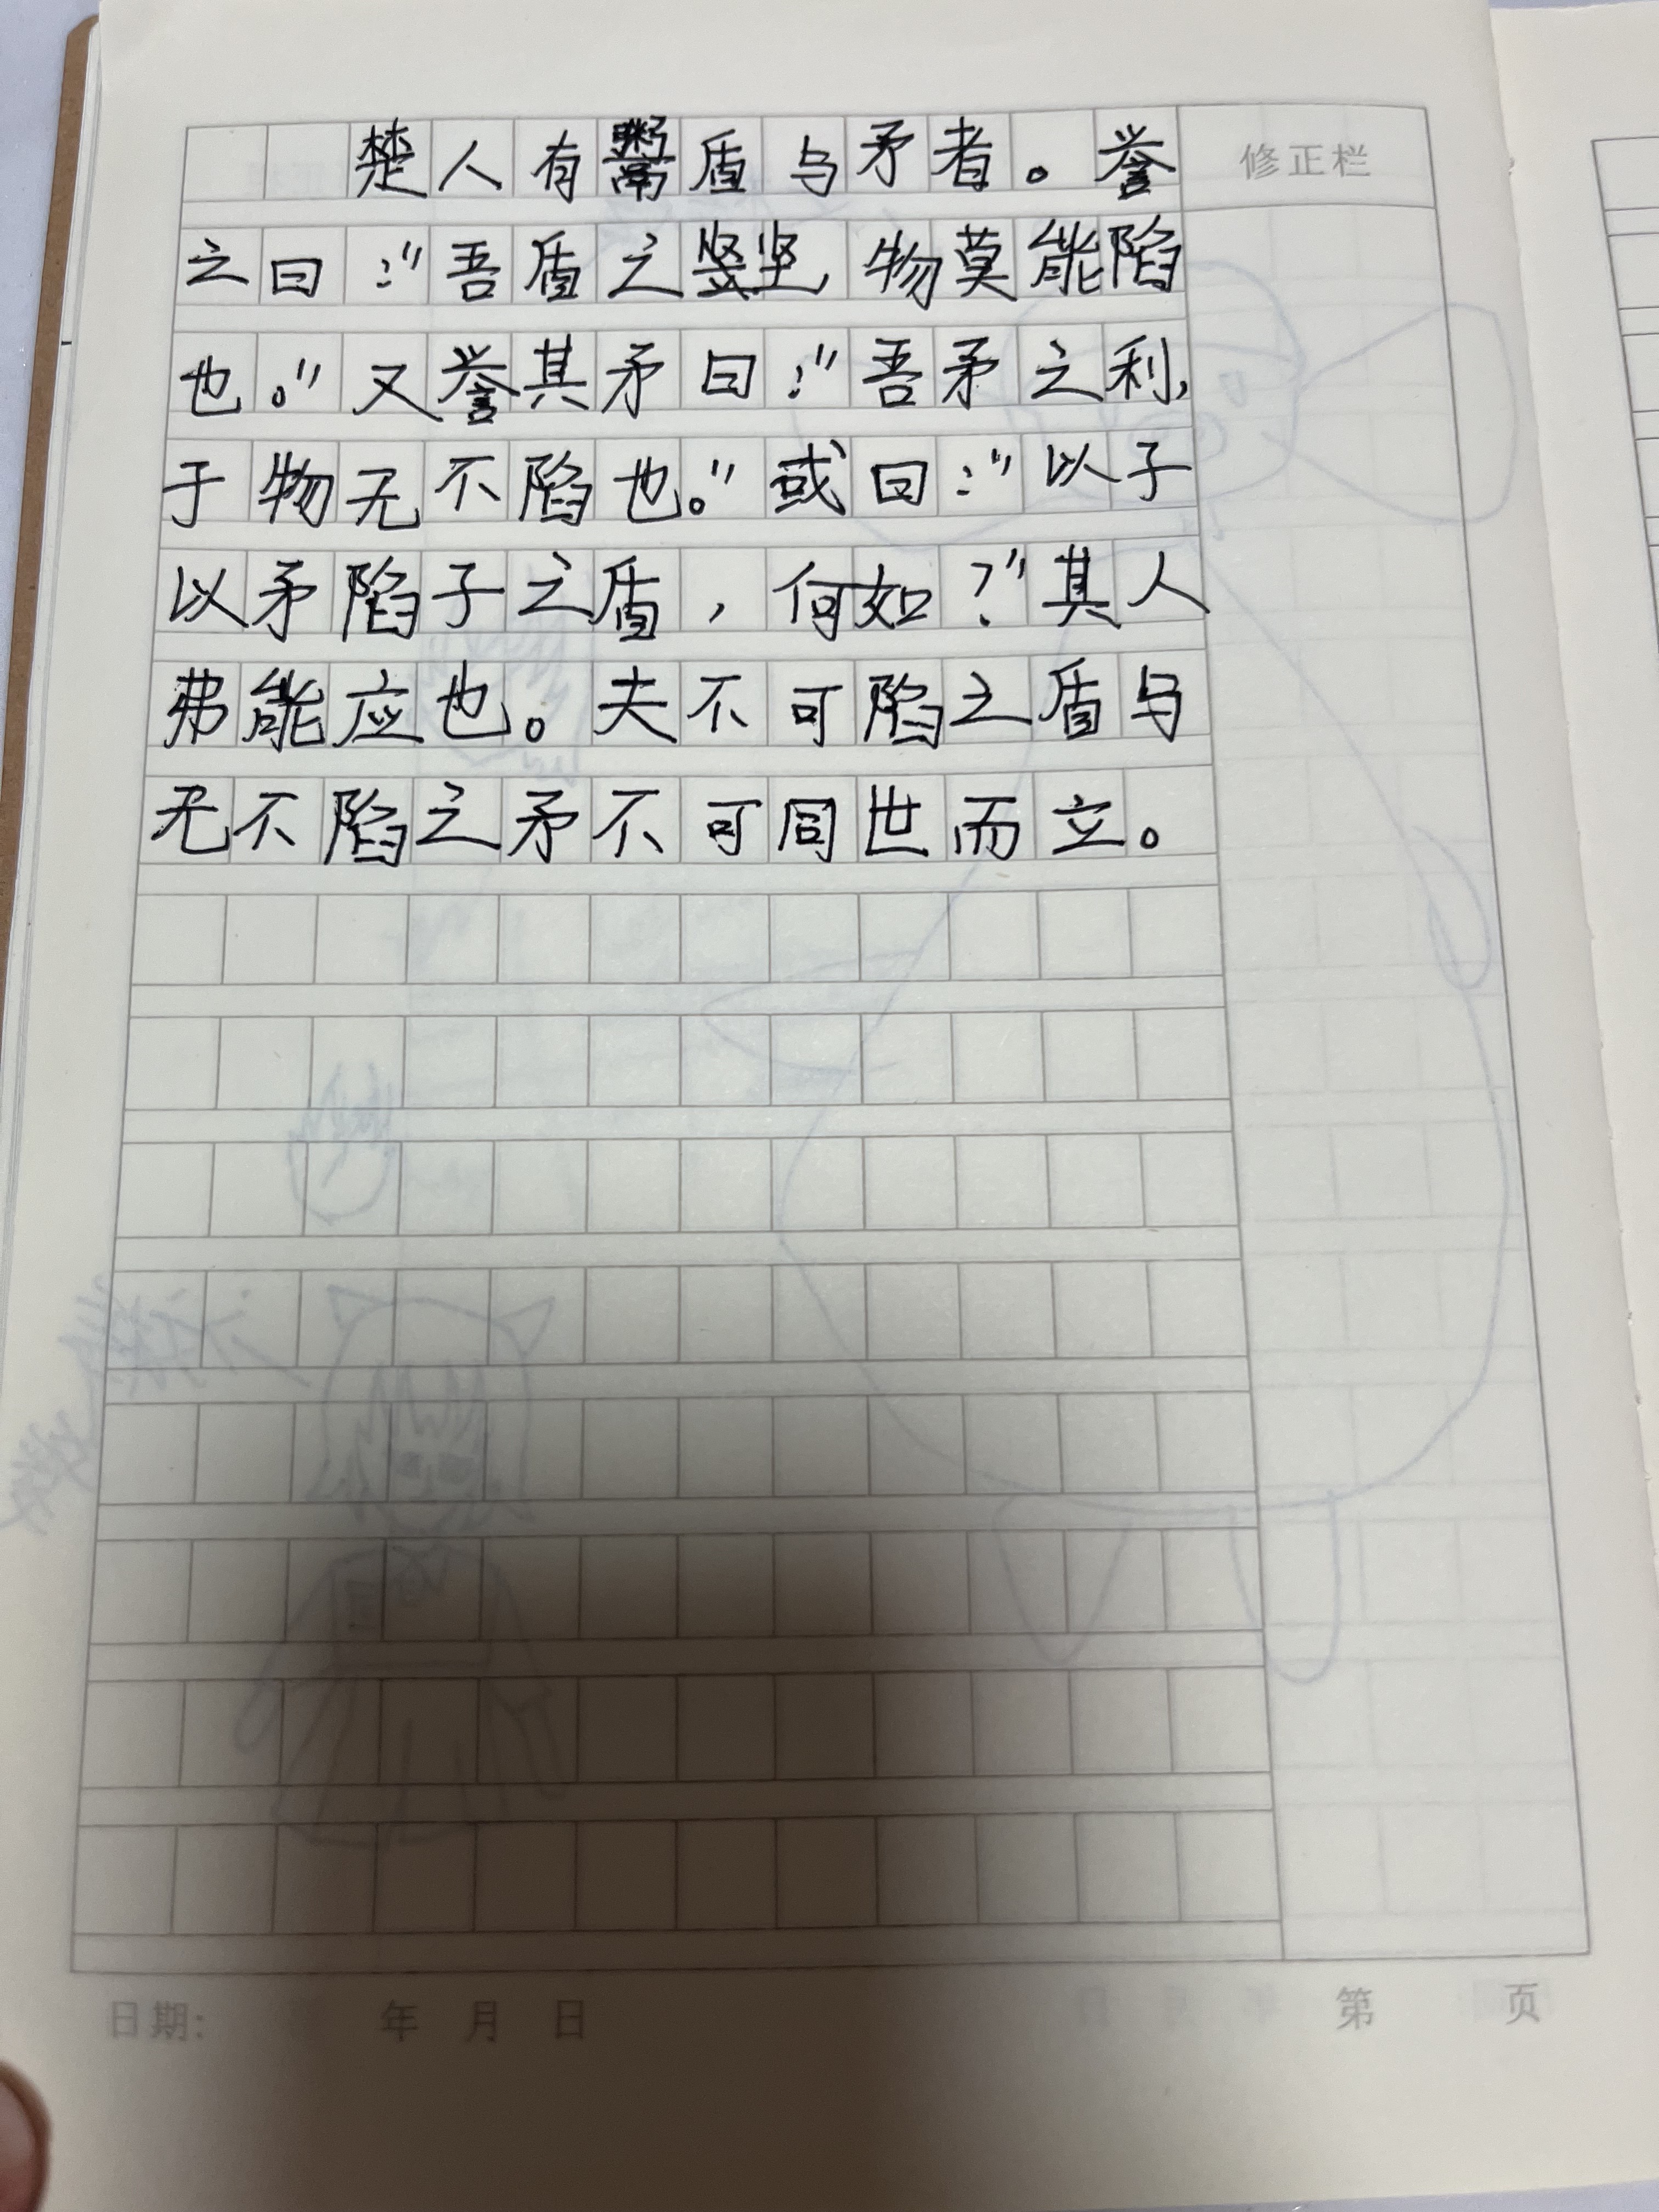 楚人有鬻盾与矛者。誉
修正栏
之曰："吾盾之坚，物莫能陷
也。"又誉其矛曰："吾矛之利，
于物无不陷也。"或曰："以子
以矛陷子之盾，何如？"其人
弗能应也。夫不可陷之盾与
无不陷之矛不可同世而立。
日期: 年 月 日 第 页